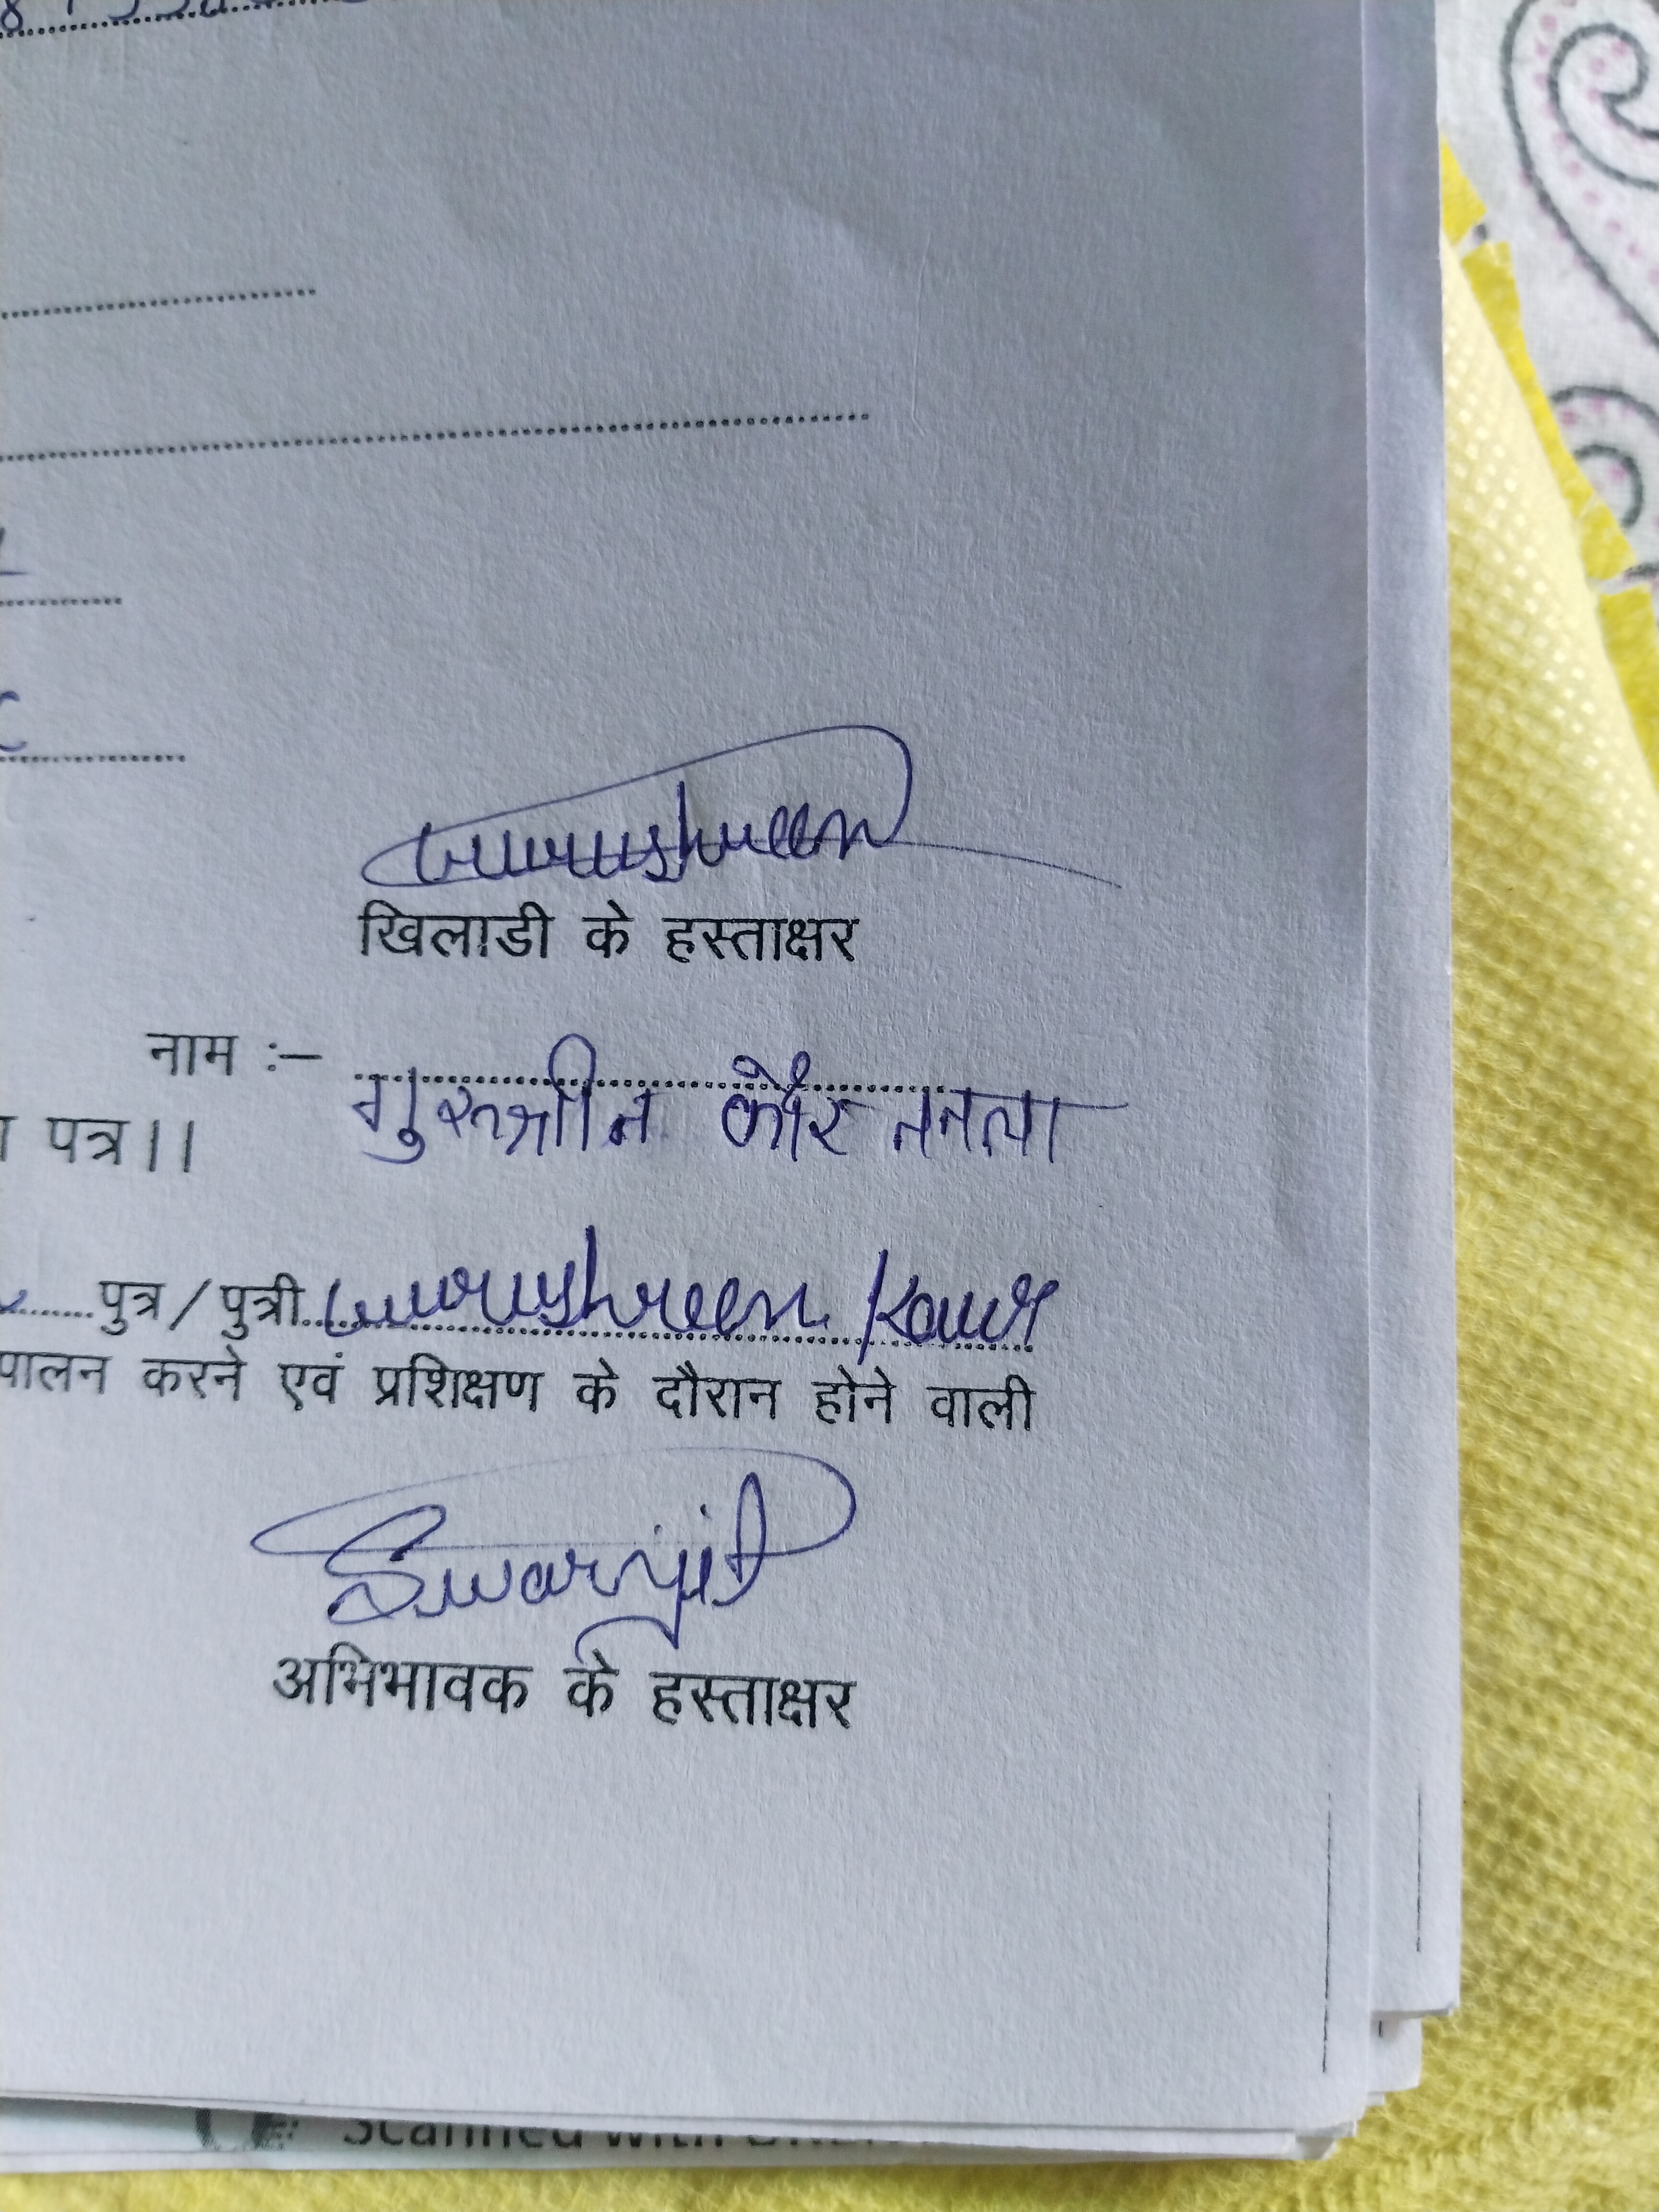 खिलाडी के हस्ताक्षर
नाम :- गुरुश्रीन कौर
पत्र।।
पुत्र/पुत्री Gurushreen Kaur
पालन करने एवं प्रशिक्षण के दौरान होने वाली
Swarnjit
अभिभावक के हस्ताक्षर
Scanned with